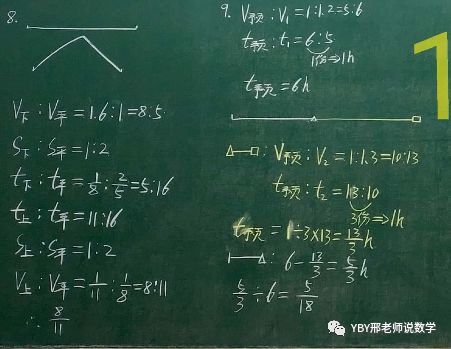 8.
V下:V平=1.6:1=8:5
S下:S平=1:2
t下:t平=1/8:2/5=5:16
t上:t平=11:16
S上:S平=1:2
V上:V平=1/11:1/8=8:11
∴ 8/11
9. V预:V₁=1:1.2=5:6
t预:t₁=6:5
1份⇒1h
t预=6h
△—□:V预:V₂=1:1.3=10:13
t预:t₂=13:10
3份⇒1h
t预=1÷3×13=13/3h
|—△:6-13/3=5/3h
5/3÷6=5/18
1
YBY邢老师说数学